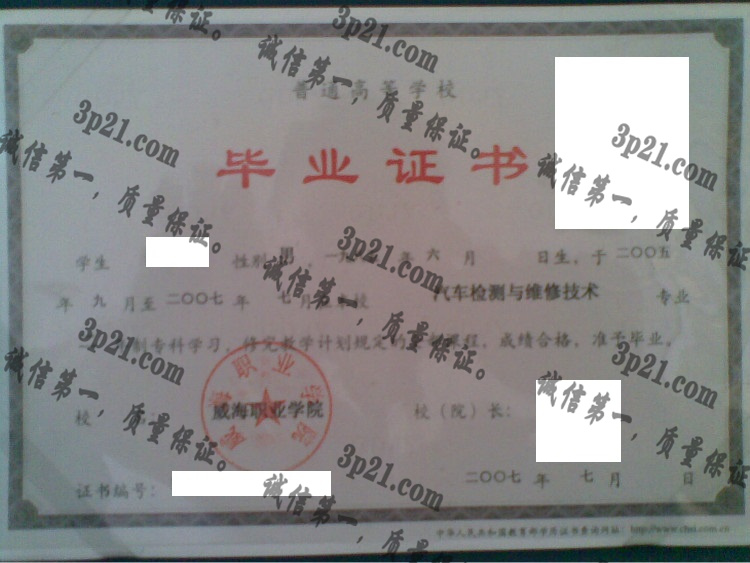 普通高等学校
毕业证书
学生 性别 男 , 一九 年 六 月 日生, 于 二〇〇五
年 九 月至 二〇〇七 年 七 月 校 汽车检测与维修技术 专业
制专科学习, 修完教学计划规定的 课程, 成绩合格, 准予毕业。
校 威海职业学院 校（院）长：
威海职业学院
证书编号： 二〇〇七 年 七 月 日
中华人民共和国教育部学历证书查询网址：http://www.chsi.com.cn
3p21.com
诚信第一，质量保证。
3p21.com
诚信第一，质量保证。
3p21.com
诚信第一，质量保证。
3p21.com
诚信第一，质量保证。
3p21.com
诚信第一，质量保证。
3p21.com
诚信第一，质量保证。
3p21.com
诚信第一，质量保证。